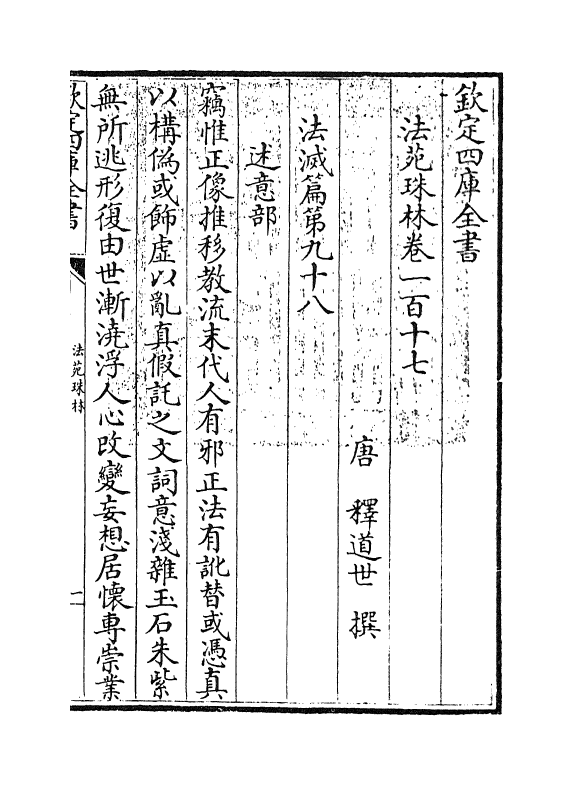 欽定四庫全書
法苑珠林卷一百十七
唐　釋道世　撰
法滅篇第九十八
述意部
竊惟正像推移教流末代人有邪正法有訛替或憑真
以構偽或飾虛以亂真假託之文詞意淺雜玉石朱紫
無所逃形復由世漸澆浮人心改變妄想居懷專崇業
欽定四庫全書
法苑珠林
一